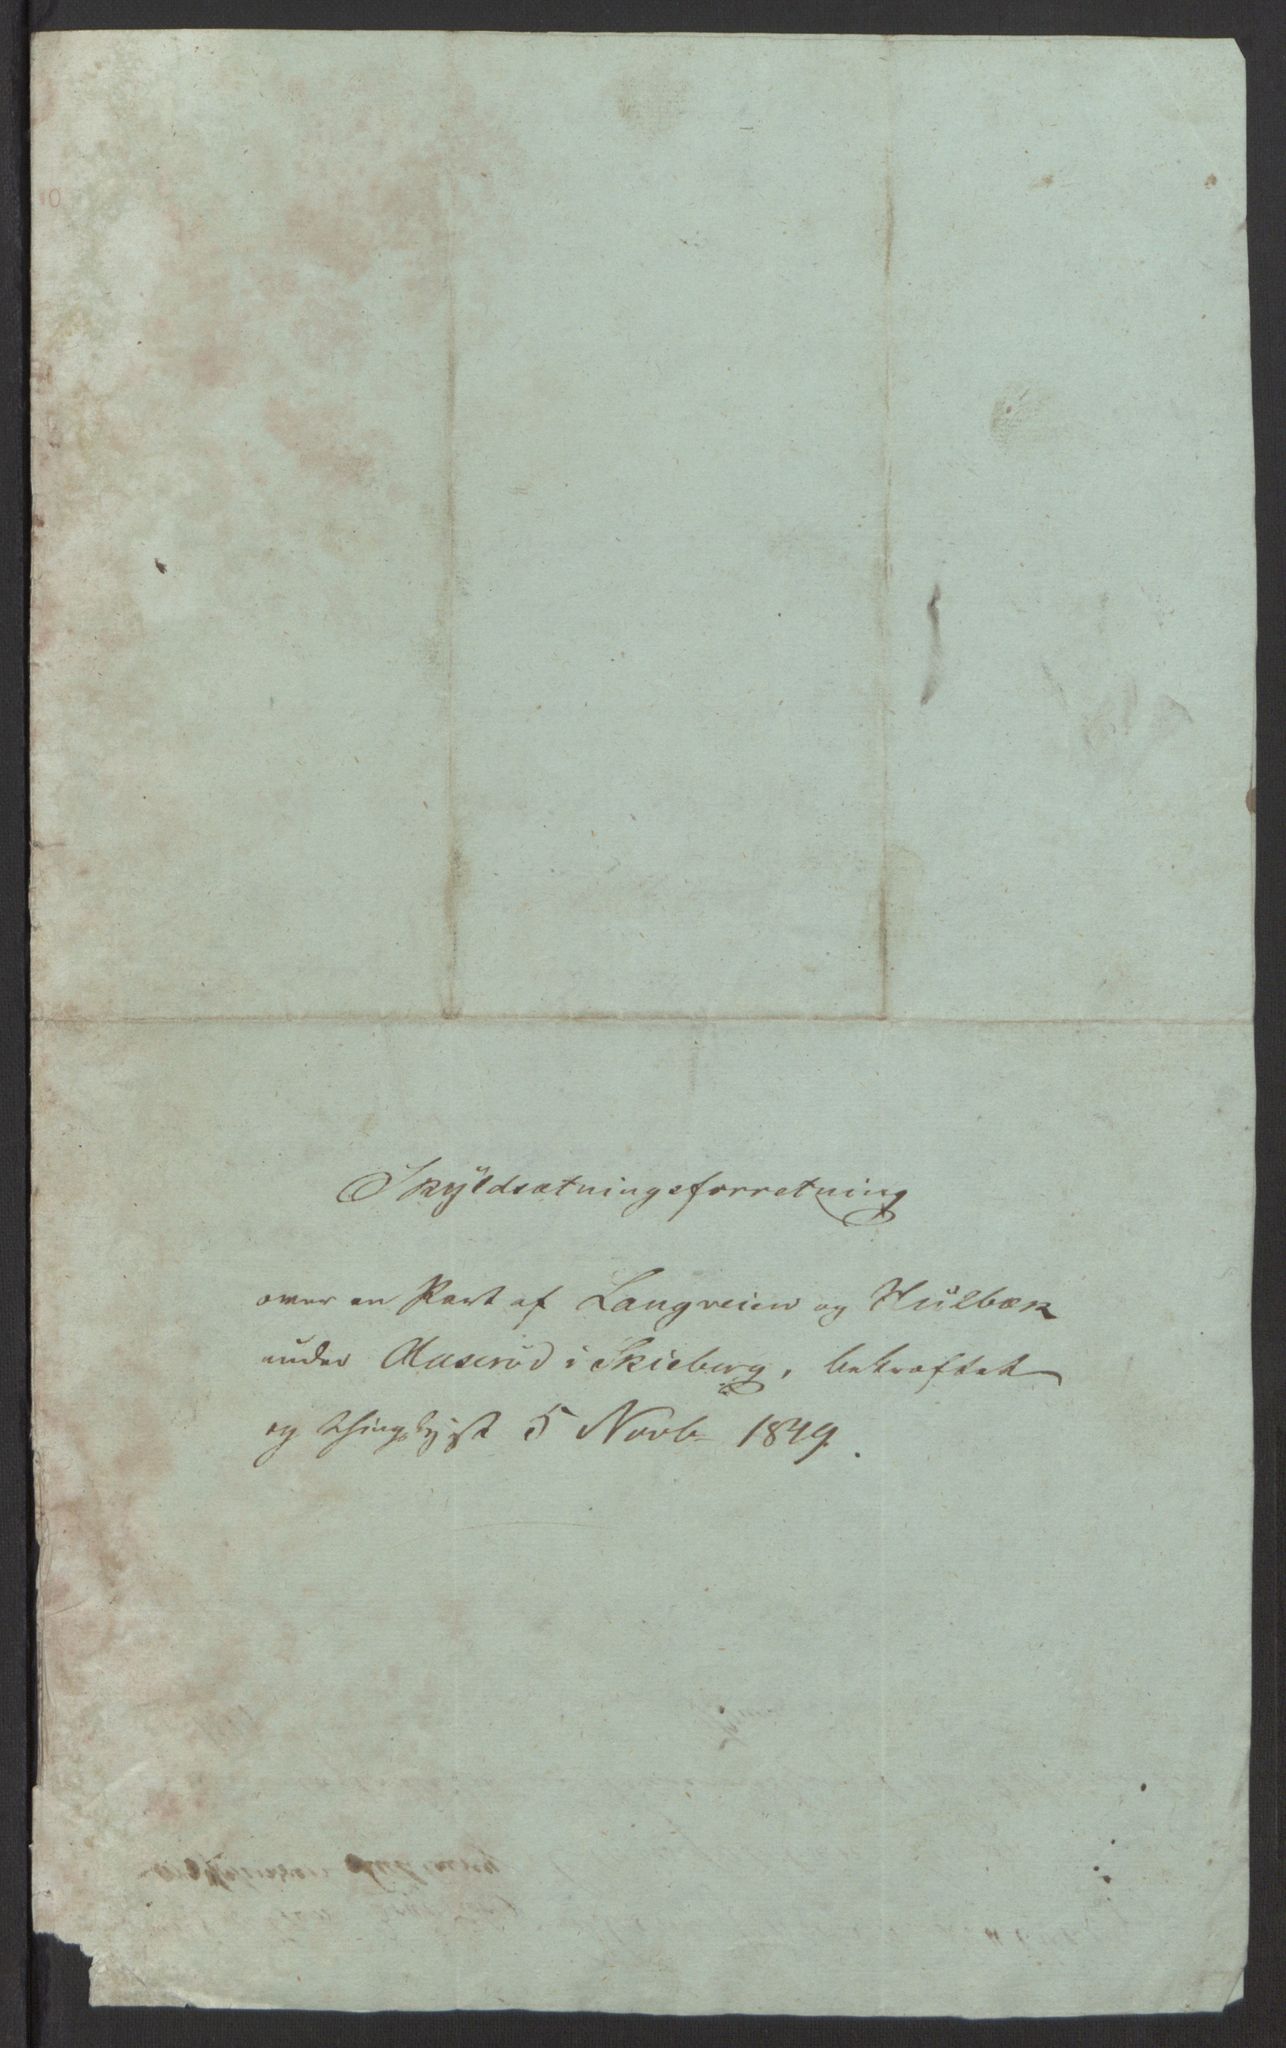 10
Skyldsætningsforretning
over en Part af Langveien og Hülbæk
under i Skieberg, bekræftet
og thinglyst 5 Novb 1849.